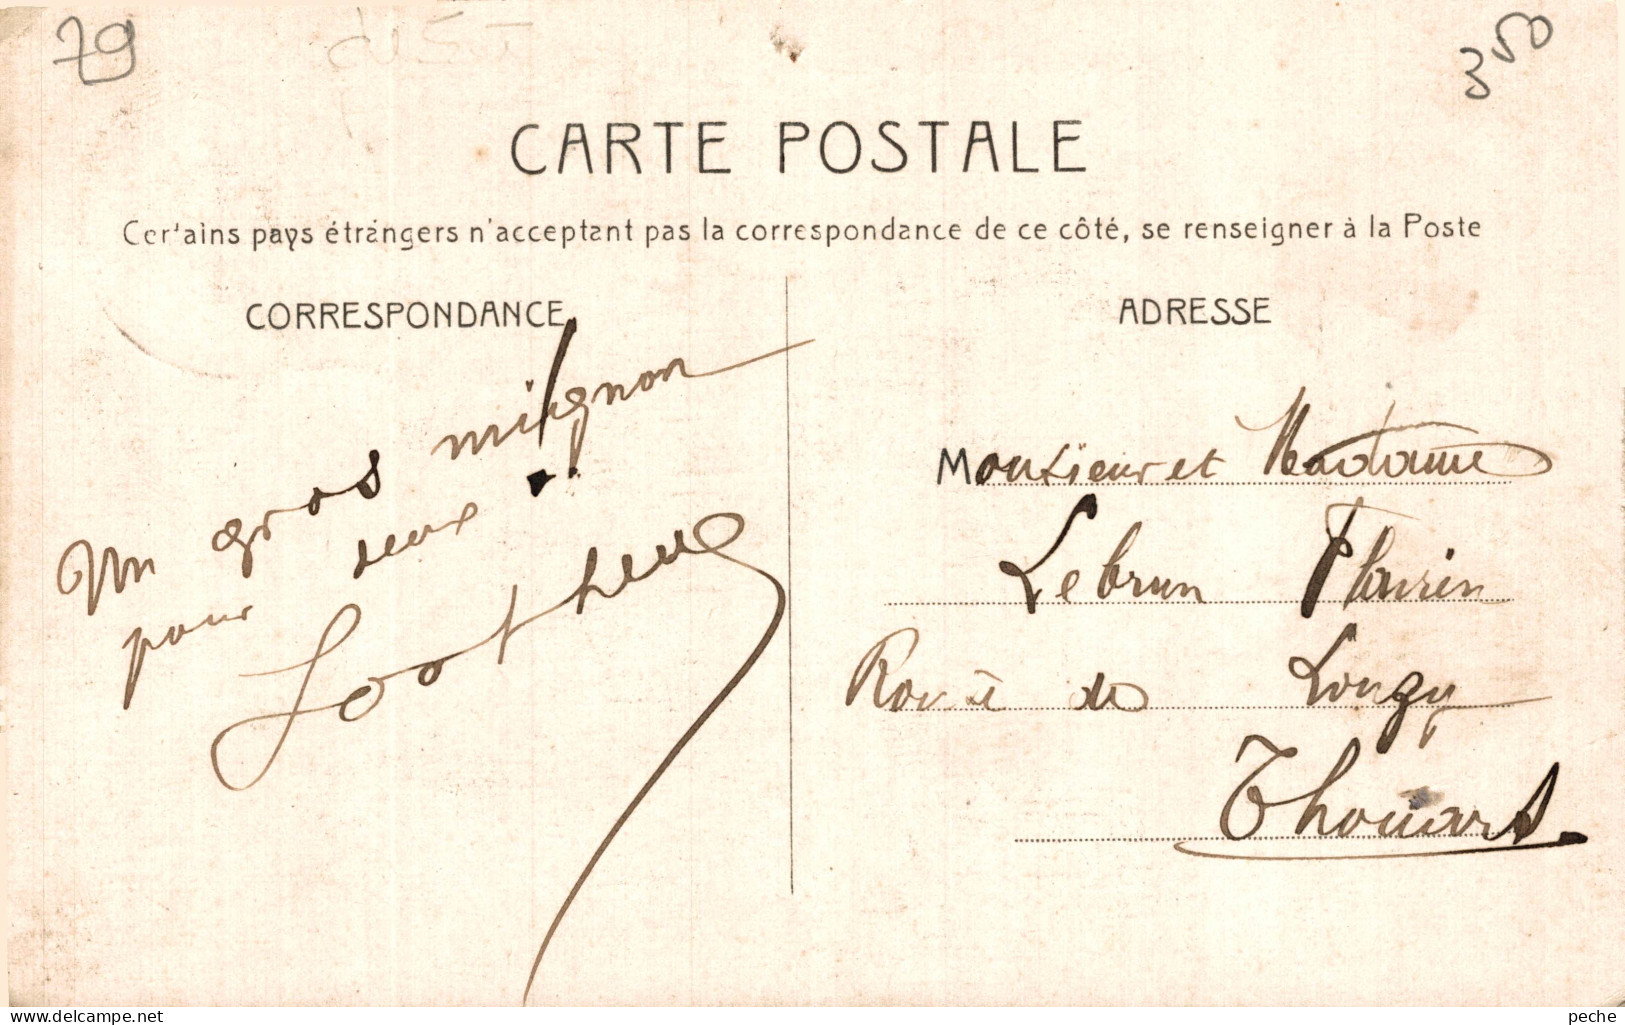 79
350
CARTE POSTALE
Certains pays étrangers n'acceptant pas la correspondance de ce côté, se renseigner à la Poste
CORRESPONDANCE
Un gros mignon
pour
ADRESSE
Monsieur et Madame
Lebrun
Route de Louzy
Thouars
www.delcampe.net
peche